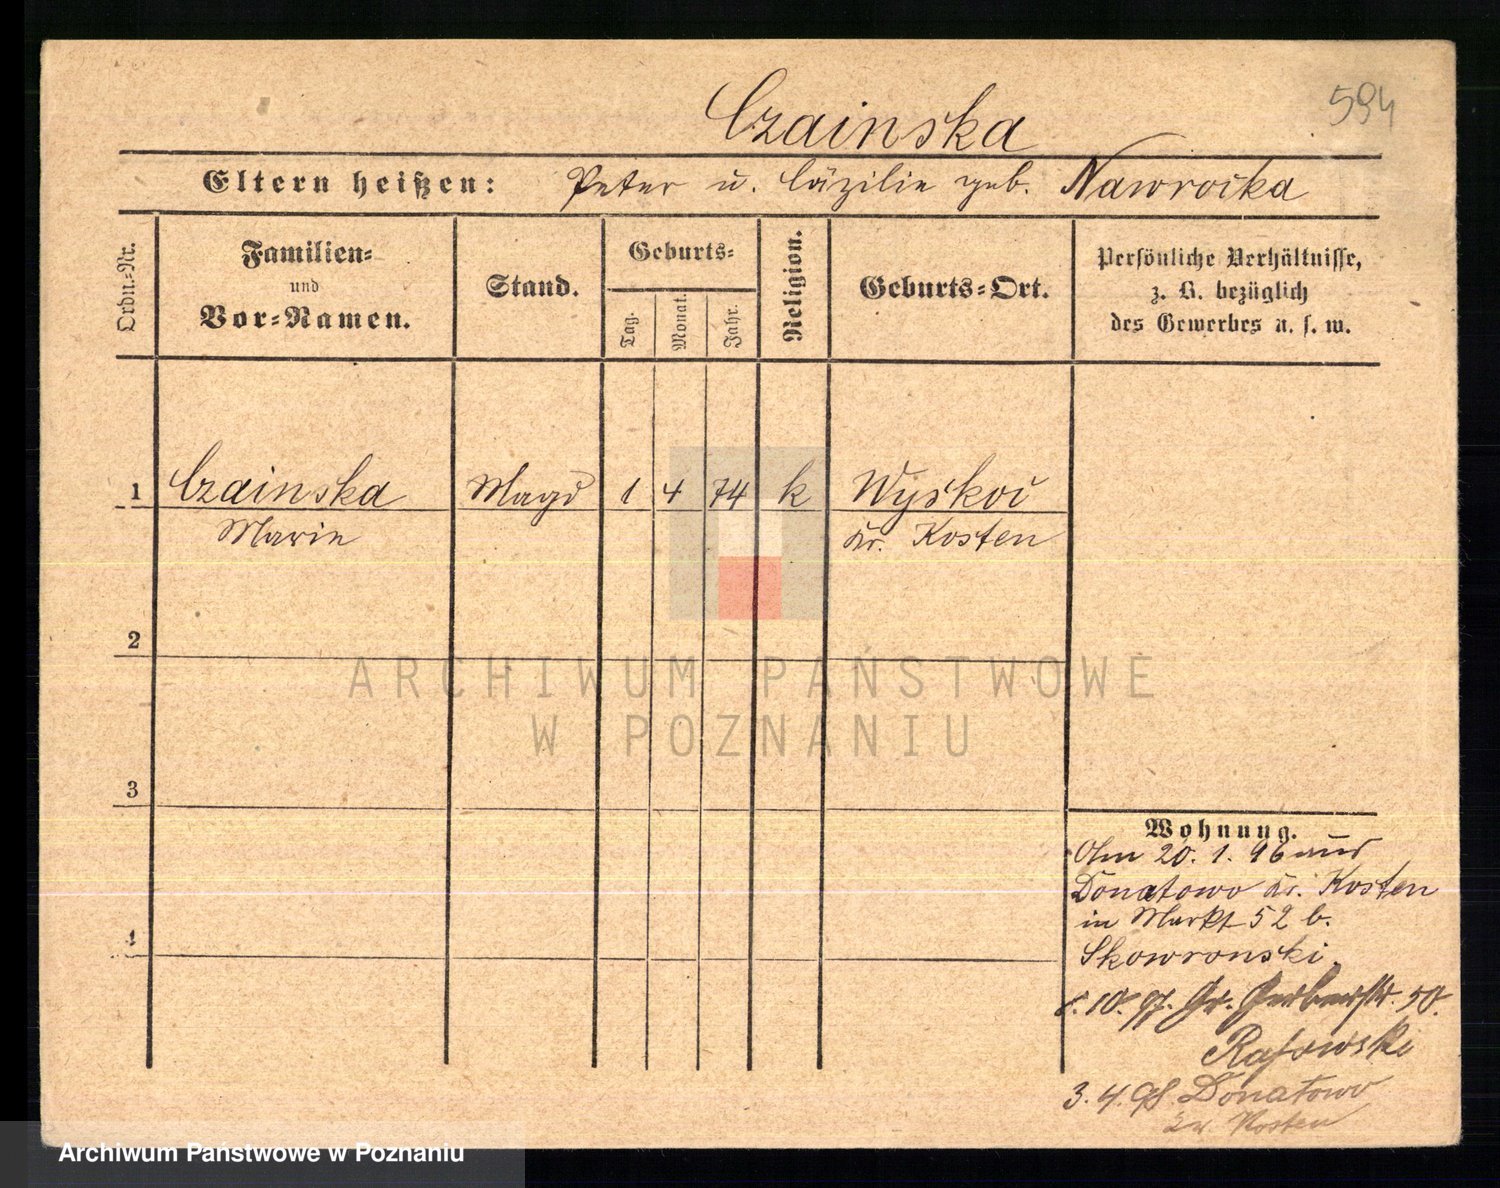 594
Czainska
Eltern heißen: Peter u. Cäzilie geb. Nawrocka
Ordn.-Nr.
Familien-
und
Vor-Namen.
Stand.
Geburts-
Tag.
Monat.
Jahr.
Religion.
Geburts-Ort.
Persönliche Verhältnisse,
z. B. bezüglich
des Gewerbes u. s. w.
1 Czainska Magd 1 4 74 k Wyskoć
Marie Kr. Kosten
2
3
4
Wohnung.
20. 1. 96 aus
Donatowo Kr. Kosten
in Markt 52 b.
Skowronski.
10. 97. Gr. Gerberstr. 50.
3. 4. 98 Donatowo
Kr. Kosten
ARCHIWUM PAŃSTWOWE
W POZNANIU
Archiwum Państwowe w Poznaniu